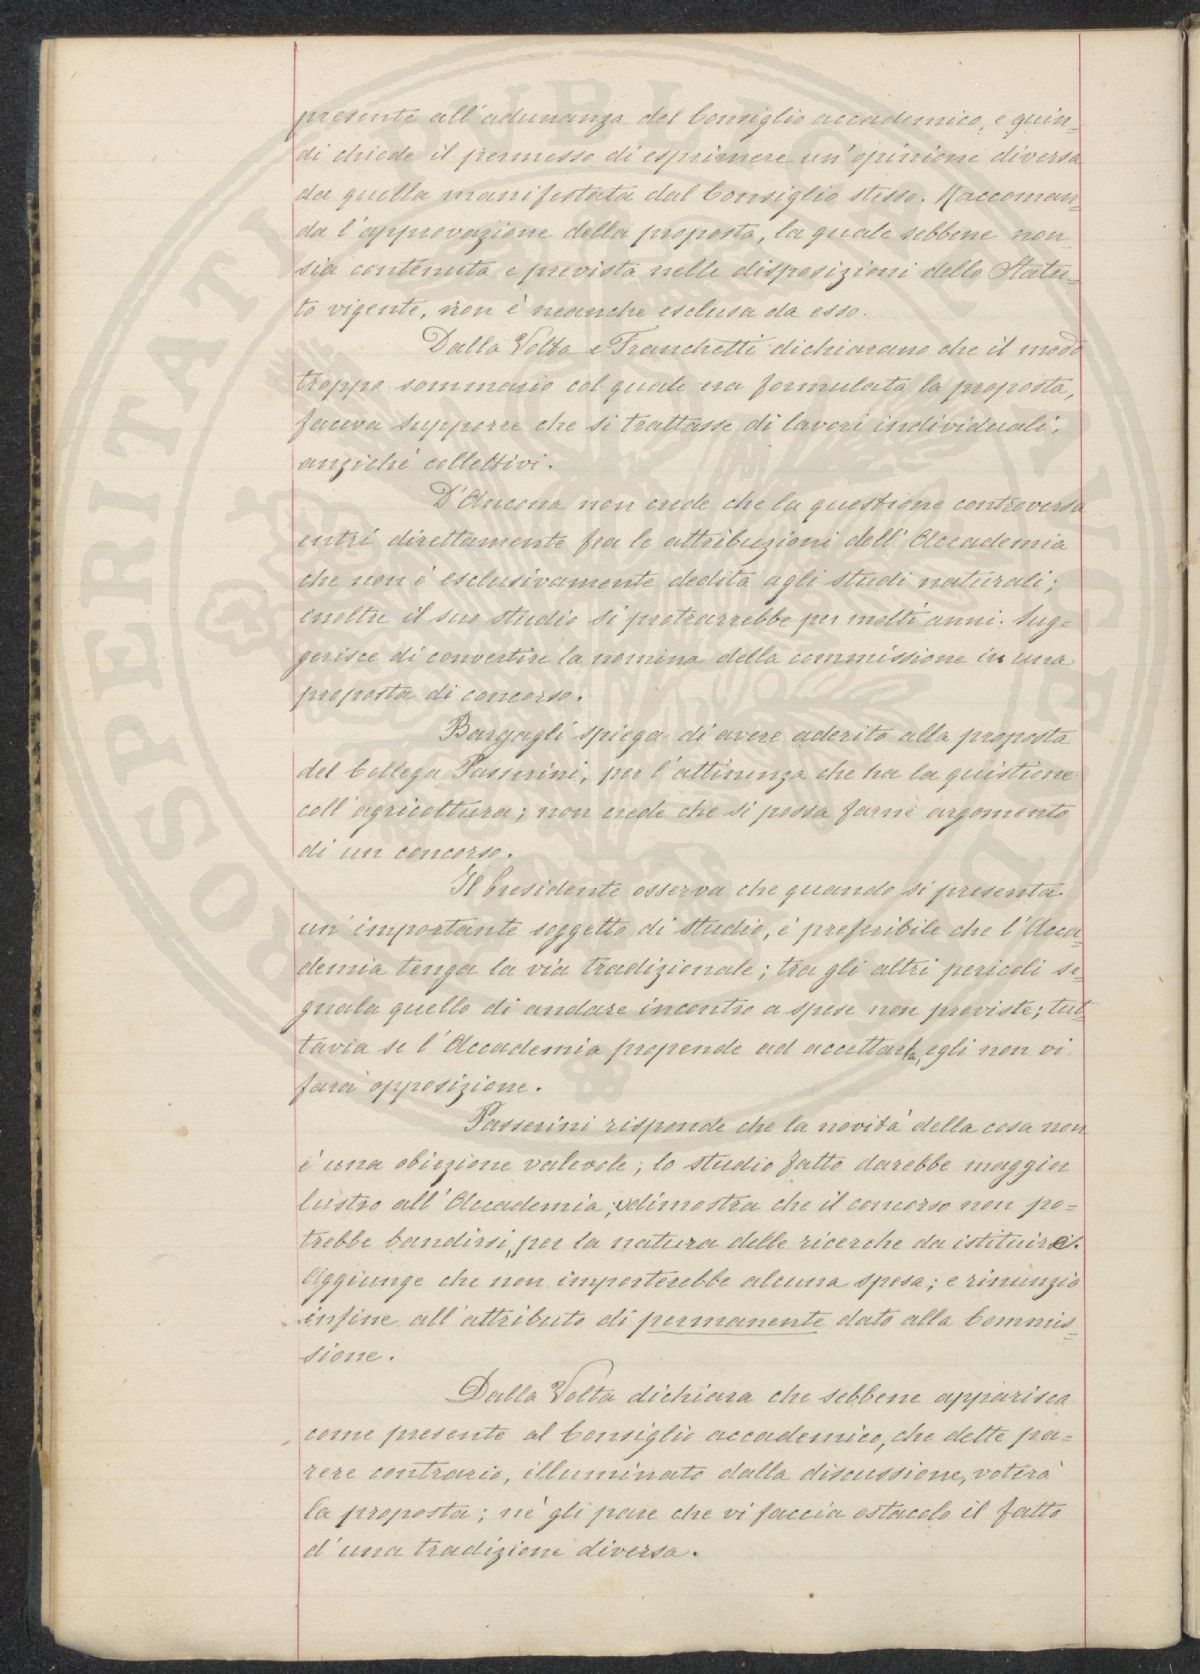 presente all'adunanza del Consiglio accademico, e quin=
di chiede il permesso di esprimere un'opinione diversa
da quella manifestata dal Consiglio stesso. Raccoman=
da l'approvazione della proposta, la quale sebbene non
sia contenuta e prevista nelle disposizioni dello Statu=
to vigente, non è neanche esclusa da esso.
Dalla Volta e Franchetti dichiarano che il modo
troppo sommario col quale era formulata la proposta,
faceva supporre che si trattasse di lavori individuali,
anziché collettivi.
D'Ancona non crede che la questione controversa
entri direttamente fra le attribuzioni dell'Accademia
che non è esclusivamente dedita agli studi naturali;
inoltre il suo studio si protrarrebbe per molti anni. Sug=
gerisce di convertire la nomina della commissione in una
proposta di concorso.
Bargagli spiega di avere aderito alla proposta
del Collega Passerini, per l'attinenza che ha la quistione
coll'agricoltura; non crede che si possa farne argomento
di un concorso.
Il Presidente osserva che quando si presenta
un'importante soggetto di studio, è preferibile che l'Acca=
demia tenga la via tradizionale; tra gli altri pericoli se=
gnala quello di andare incontro a spese non previste; tut=
tavia se l'Accademia propende ad accettarla, egli non vi
farà opposizione.
Passerini risponde che la novità della cosa non
è una obiezione valevole; lo studio fatto darebbe maggior
lustro all'Accademia; dimostra che il concorso non po=
trebbe bandirsi, per la natura delle ricerche da istituire.
Aggiunge che non importerebbe alcuna spesa; e rinunzia
infine all'attributo di permanente dato alla Commis=
sione.
Dalla Volta dichiara che sebbene apparisca
come presente al Consiglio accademico, che dette pa=
rere contrario, illuminato dalla discussione, voterà
la proposta; nè gli pare che vi faccia ostacolo il fatto
d'una tradizione diversa.
PROSPERITATI PUBLICAE AUGENDAE